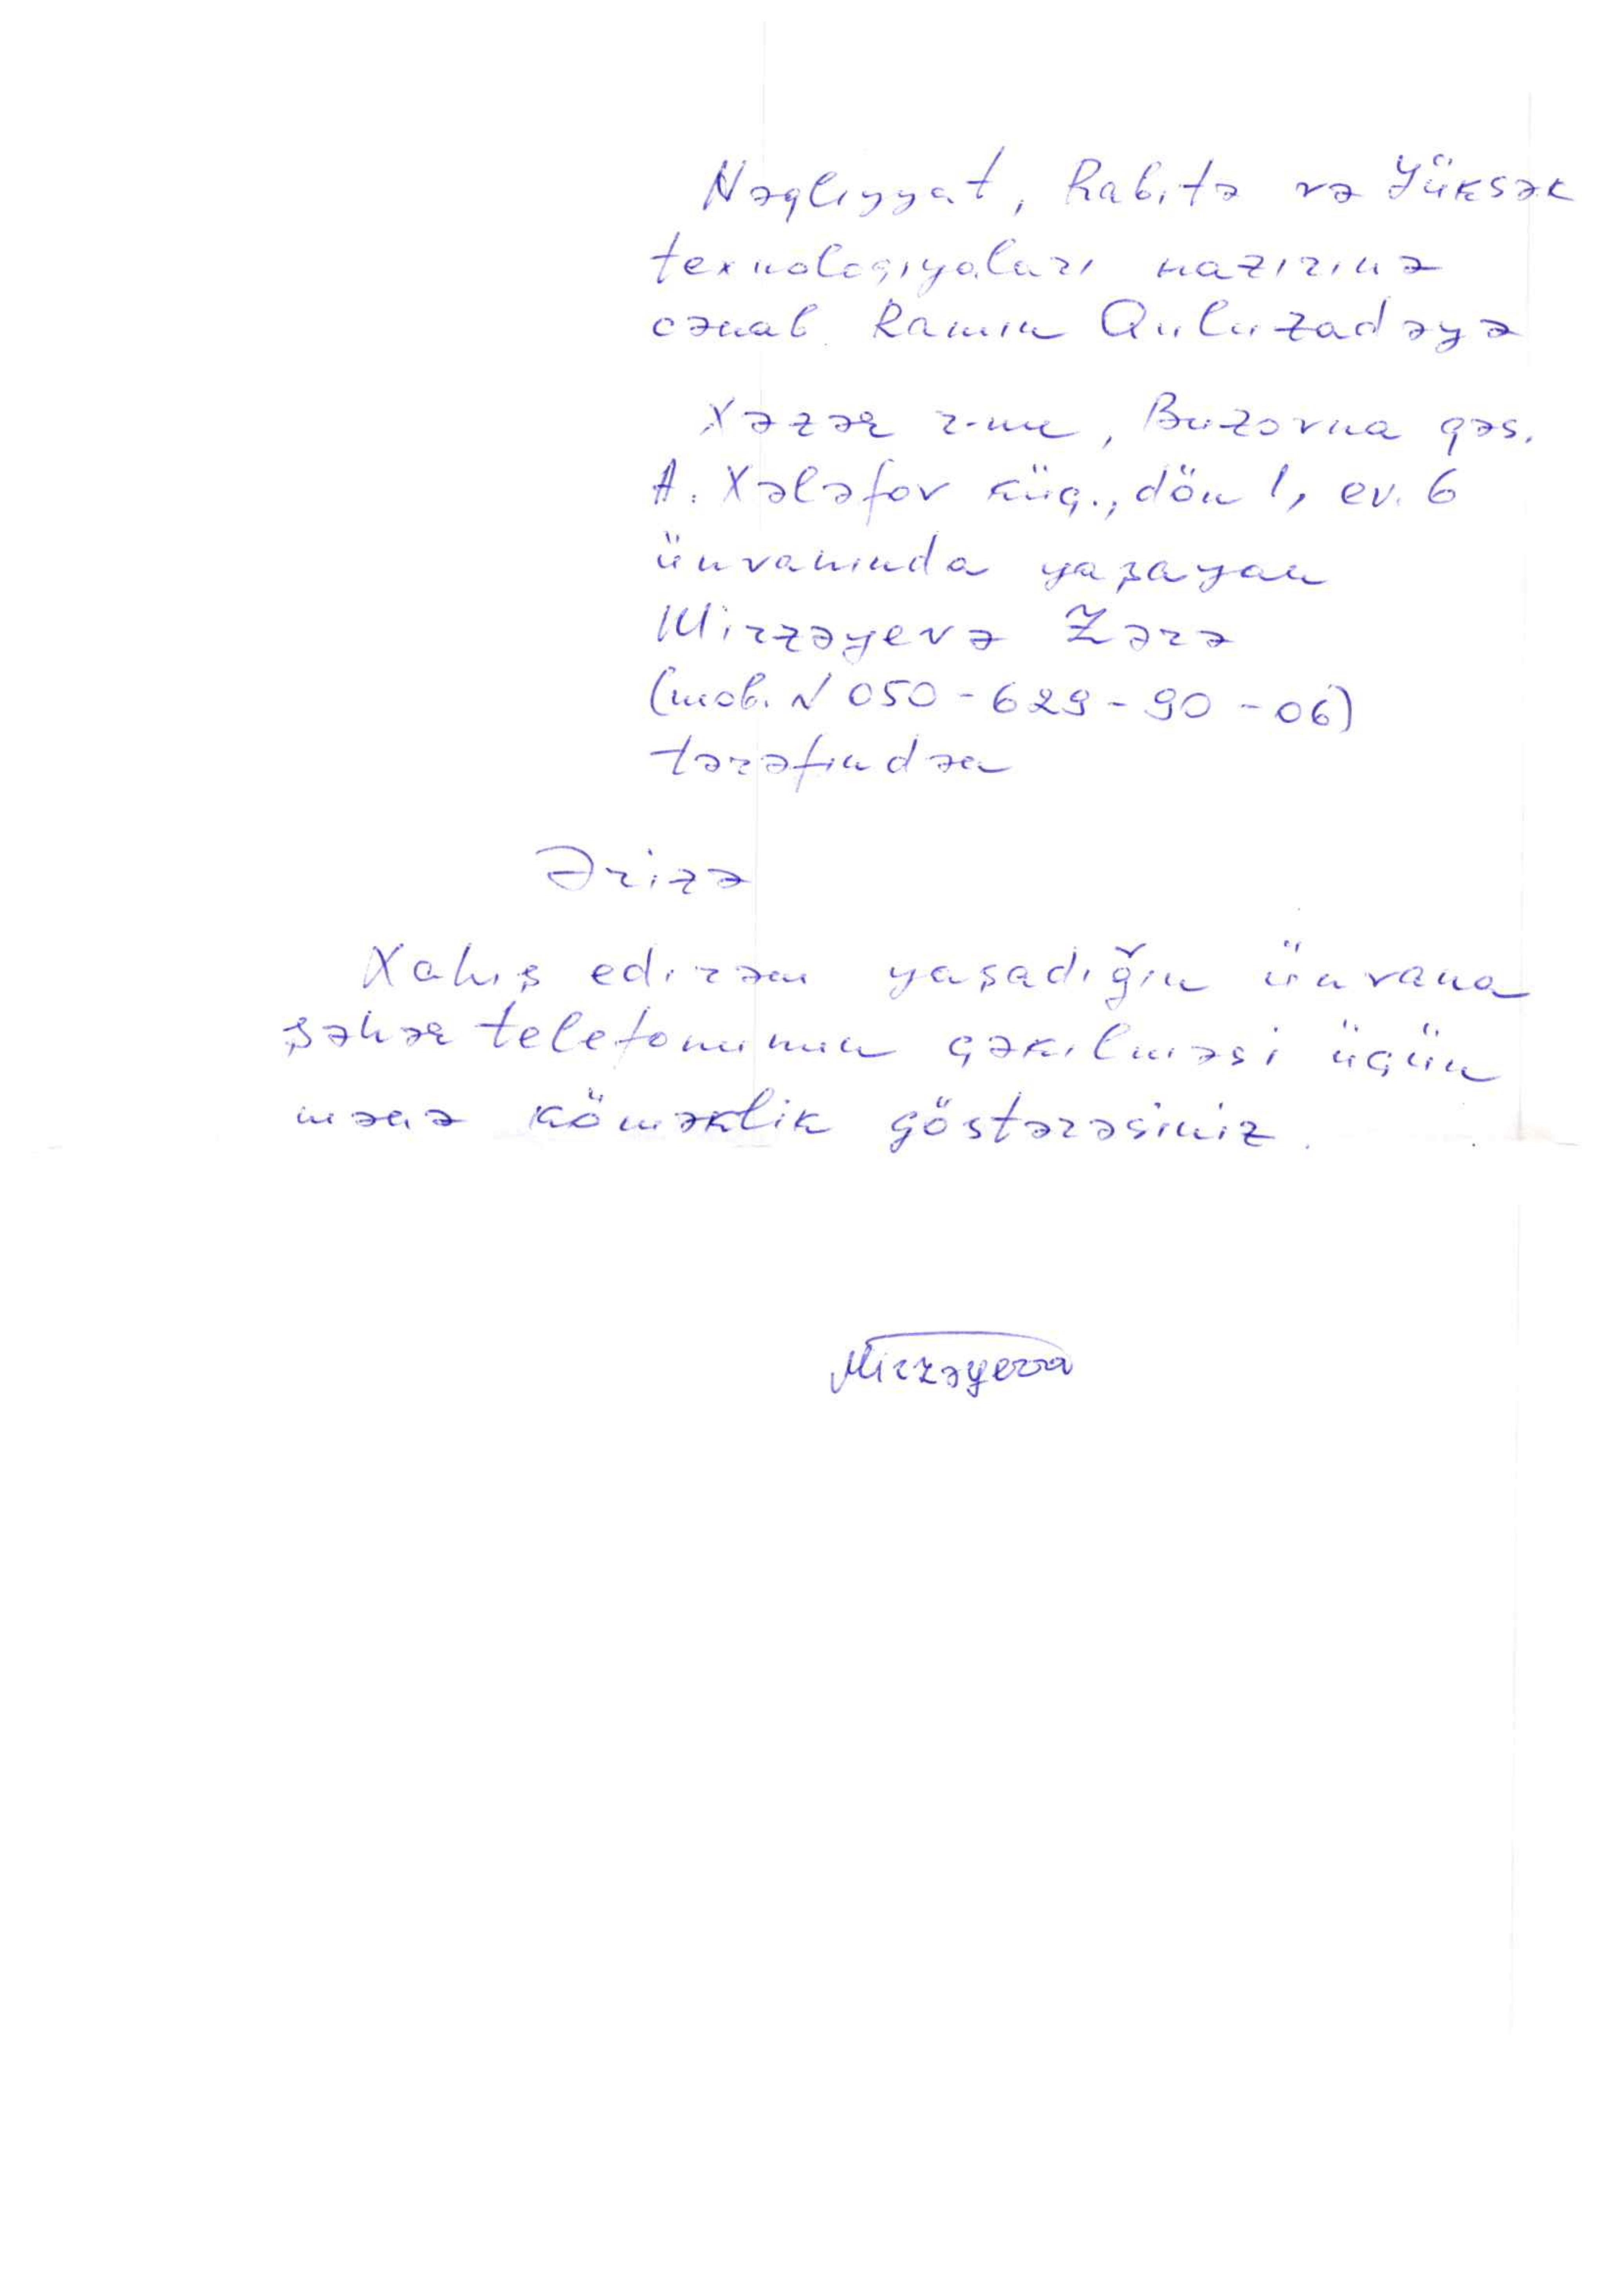 Nəqliyyat, Rabitə və Yüksək
texnologiyaları nazirinə
cənab Ramin Quluzadəyə
Xəzər r-nu, Buzovna qəs.
A. Xələfov küç., dön 1, ev. 6
ünvanında yaşayan
Mirzəyevə Zərə
(mob. N 050-629-90-06)
tərəfindən
Ərizə
Xahiş edirəm yaşadığın ünvana
şəhər telefonunun çəkilməsi üçün
mənə köməklik göstərəsiniz.
Mirzəyeva